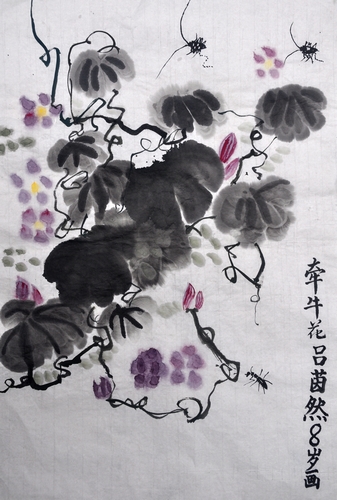 牵牛花吕茵然8岁画